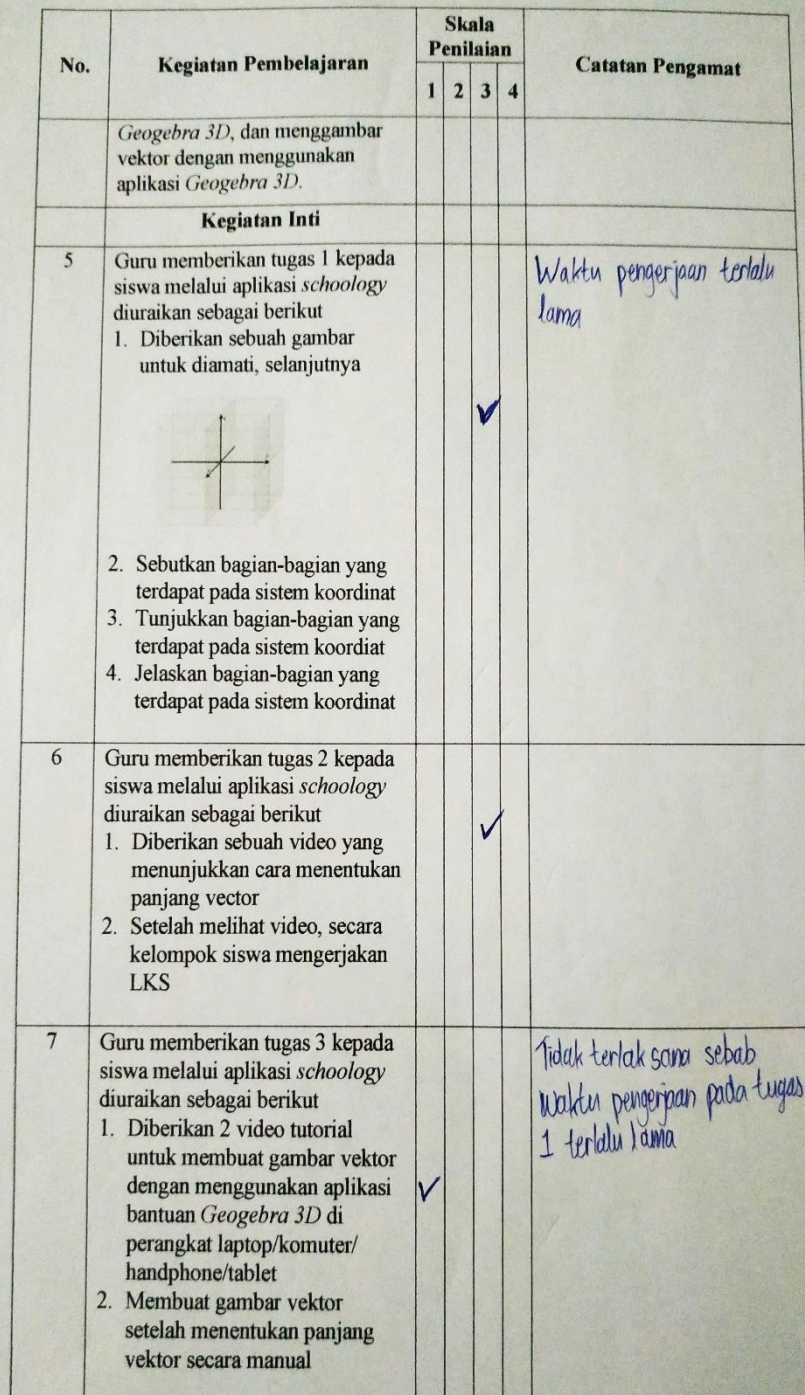 No. Kegiatan Pembelajaran Skala Penilaian Catatan Pengamat
1 2 3 4
Geogebra 3D, dan menggambar
vektor dengan menggunakan
aplikasi Geogebra 3D.
Kegiatan Inti
5 Guru memberikan tugas 1 kepada
siswa melalui aplikasi schoology
diuraikan sebagai berikut
1. Diberikan sebuah gambar
untuk diamati, selanjutnya
Waktu pengerjaan terlalu
lama
✓
2. Sebutkan bagian-bagian yang
terdapat pada sistem koordinat
3. Tunjukkan bagian-bagian yang
terdapat pada sistem koordiat
4. Jelaskan bagian-bagian yang
terdapat pada sistem koordinat
6 Guru memberikan tugas 2 kepada
siswa melalui aplikasi schoology
diuraikan sebagai berikut
1. Diberikan sebuah video yang
menunjukkan cara menentukan
panjang vector
2. Setelah melihat video, secara
kelompok siswa mengerjakan
LKS
✓
7 Guru memberikan tugas 3 kepada
siswa melalui aplikasi schoology
diuraikan sebagai berikut
1. Diberikan 2 video tutorial
untuk membuat gambar vektor
dengan menggunakan aplikasi
bantuan Geogebra 3D di
perangkat laptop/komuter/
handphone/tablet
2. Membuat gambar vektor
setelah menentukan panjang
vektor secara manual
✓
Tidak terlaksana sebab
waktu pengerjaan pada tugas
1 terlalu lama